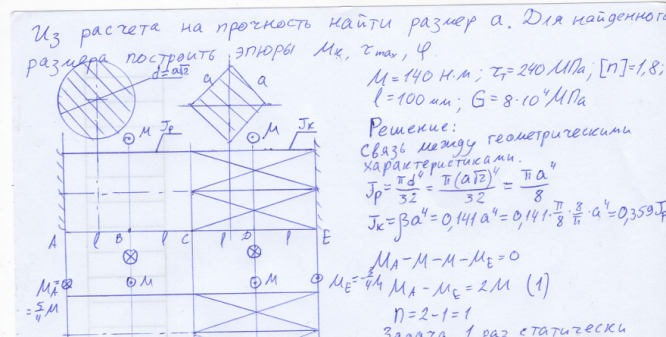 Из расчета на прочность найти размер a. Для найденного
размера построить эпюры Mк, τmax, φ.
d=a√2
a a
M=140 Н·м; τт=240 МПа; [n]=1,8;
l=100 мм; G=8·10⁴ МПа
M Jp M Jк
Решение:
связь между геометрическими
характеристиками.
Jp=πd⁴/32=π(a√2)⁴/32=πa⁴/8
Jк=βa⁴=0,141a⁴=0,141·π/8·8/π·a⁴=0,359Jp
A l B l C l D l E
MA-M-M-ME=0
MA= M M ME=-3/4M
=5/4M
MA-ME=2M (1)
n=2-1=1
Задача 1 раз статически